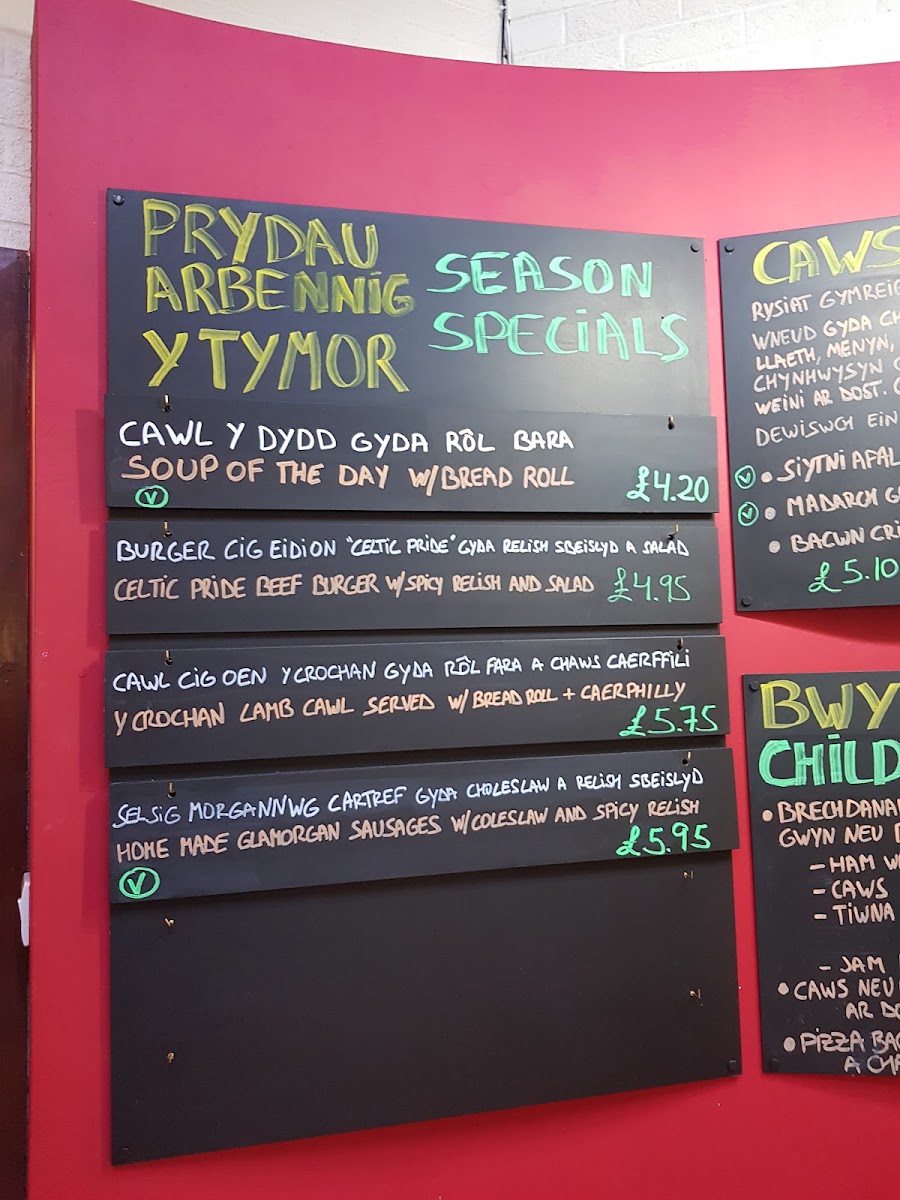 PRYDAU
ARBENNIG
Y TYMOR
SEASON
SPECIALS
CAWL Y DYDD GYDA RÔL BARA
SOUP OF THE DAY W/BREAD ROLL
V
£4.20
BURGER CIG EIDION "CELTIC PRIDE" GYDA RELISH SBEISLYD A SALAD
CELTIC PRIDE BEEF BURGER W/SPICY RELISH AND SALAD £4.95
CAWL CIG OEN Y CROCHAN GYDA RÔL FARA A CHAWS CAERFFILI
Y CROCHAN LAMB CAWL SERVED W/BREAD ROLL + CAERPHILLY
£5.75
SELSIG MORGANNWG CARTREF GYDA CHOLESLAW A RELISH SBEISLYD
HOME MADE GLAMORGAN SAUSAGES W/COLESLAW AND SPICY RELISH
£5.95
V
CAWS
RYSIAT GYMREIG
WNEUD GYDA CH
LLAETH, MENYN,
CHYNHWYSYN
WEINI AR DOST.
DEWISWCH EIN
V • SIYTNI AFAL
V • MADARCH G
• BACWN CRI
£5.10
BWY
CHILD
• BRECHDANA
GWYN NEU
- HAM W
- CAWS
- TIWNA
- JAM
• CAWS NEU
AR DO
• PIZZA BA
A CHA